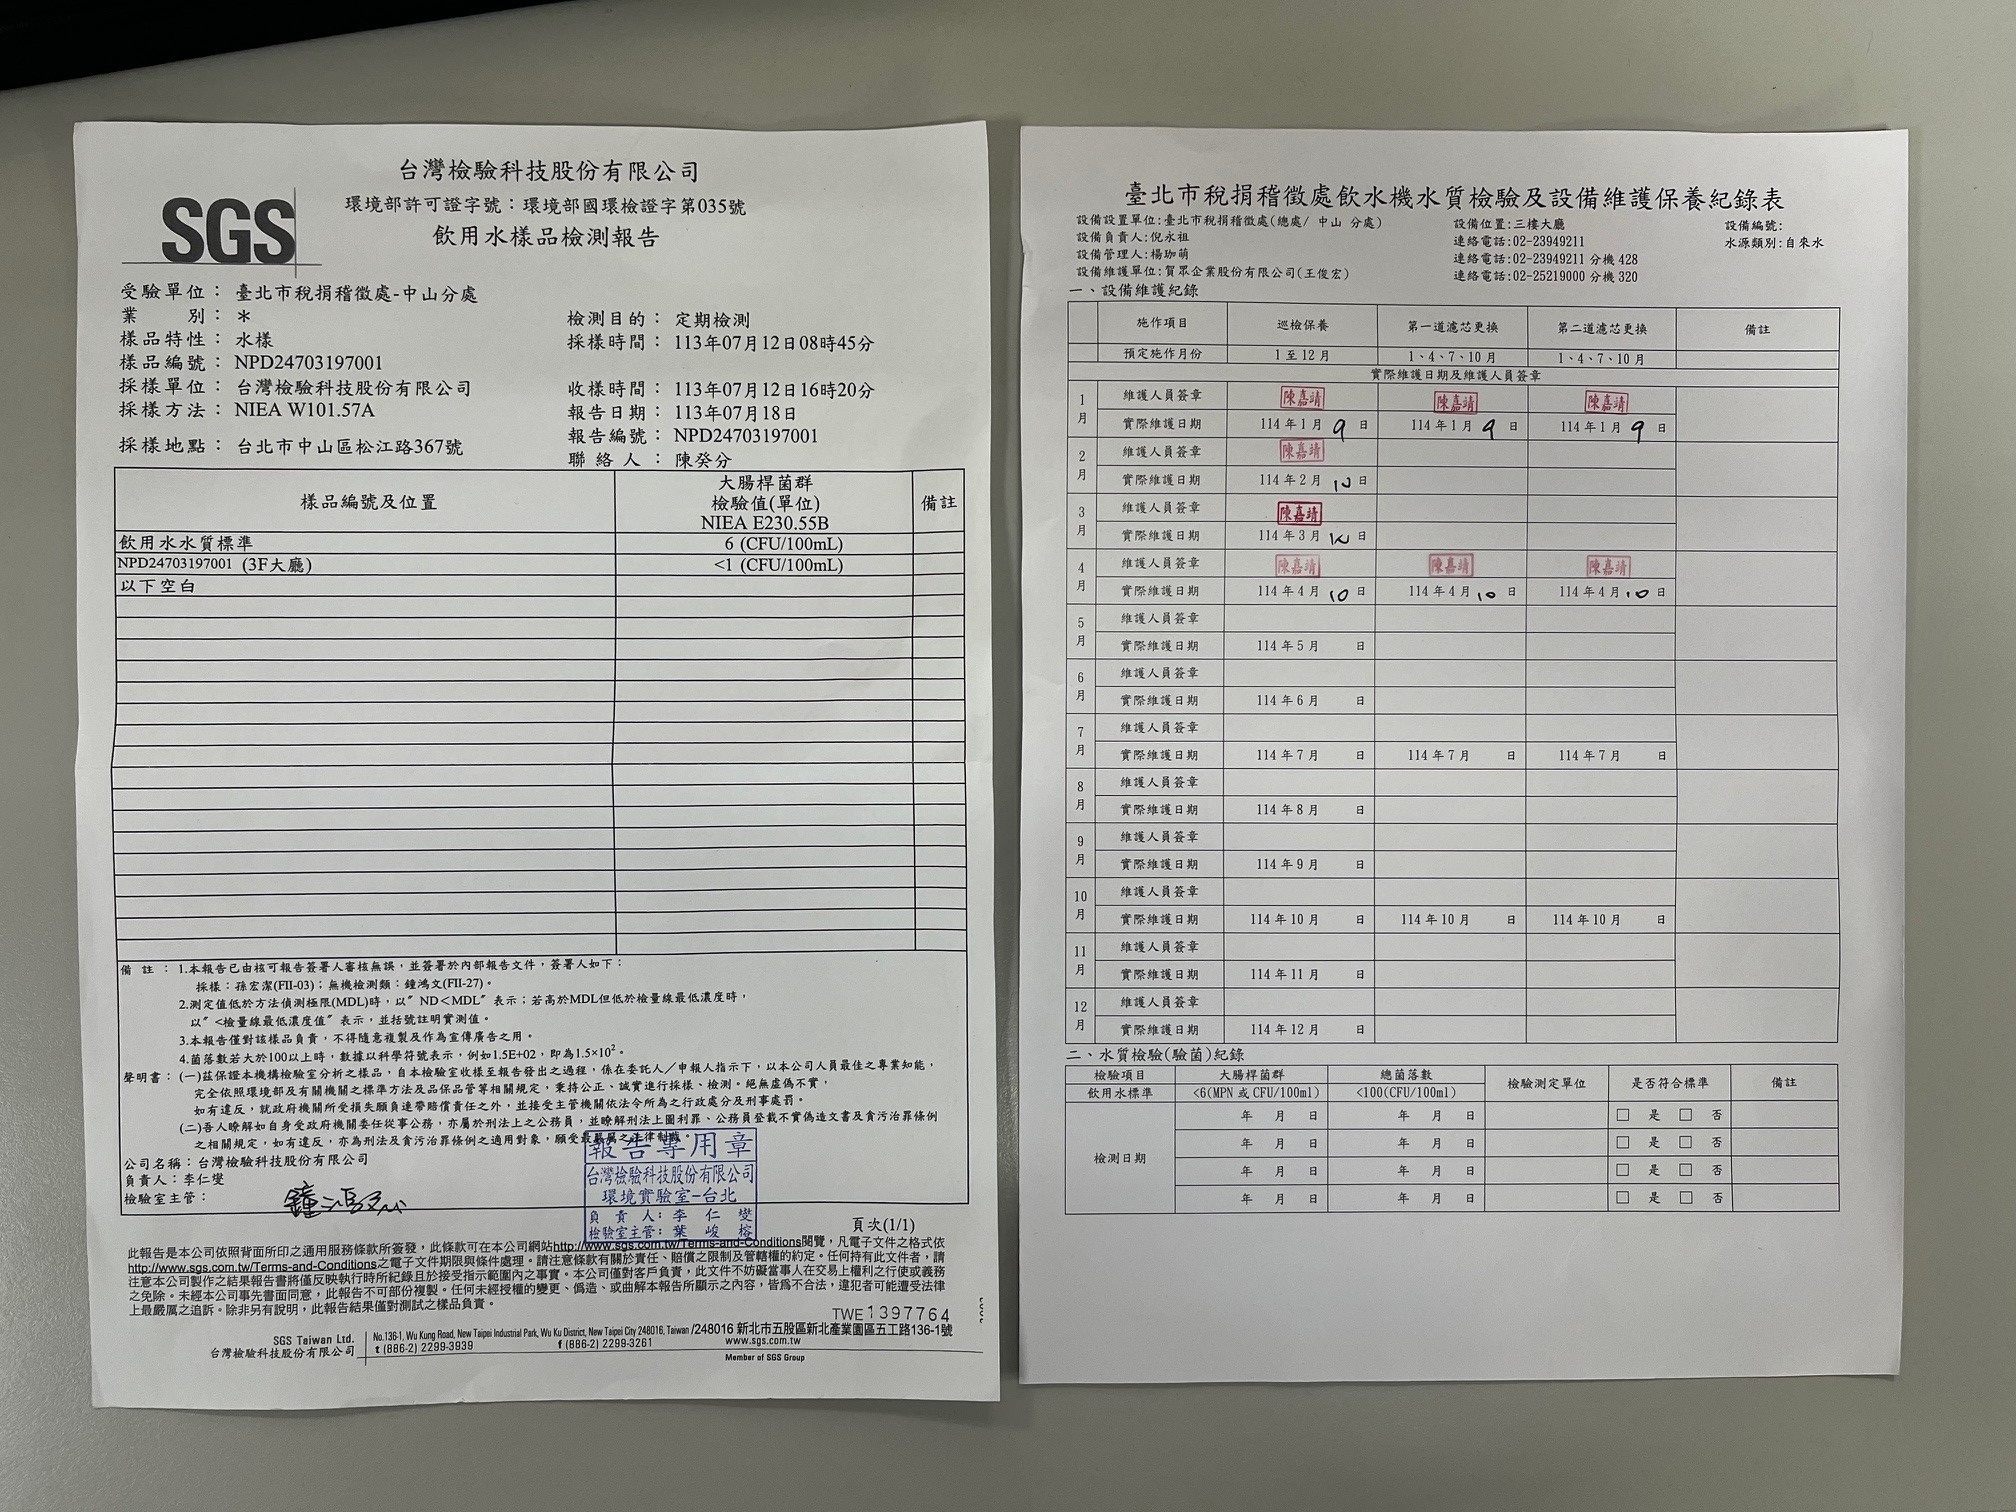 台灣檢驗科技股份有限公司
SGS
環境部許可證字號：環境部國環檢證字第035號
飲用水樣品檢測報告
受驗單位： 臺北市稅捐稽徵處-中山分處
業 別： ＊
檢測目的： 定期檢測
樣品特性： 水樣
採樣時間： 113年07月12日08時45分
樣品編號： NPD24703197001
採樣單位： 台灣檢驗科技股份有限公司
收樣時間： 113年07月12日16時20分
採樣方法： NIEA W101.57A
報告日期： 113年07月18日
報告編號： NPD24703197001
採樣地點： 台北市中山區松江路367號
聯絡人： 陳癸分
樣品編號及位置
大腸桿菌群
檢驗值(單位)
NIEA E230.55B
備註
飲用水水質標準 6 (CFU/100mL)
NPD24703197001 (3F大廳) <1 (CFU/100mL)
以下空白
備 註：1.本報告已由核可報告簽署人審核無誤，並簽署於內部報告文件，簽署人如下：
採樣：孫宏潔(FII-03)；無機檢測類：鐘鴻文(FII-27)。
2.測定值低於方法偵測極限(MDL)時，以"ND＜MDL"表示；若高於MDL但低於檢量線最低濃度時，
以"<檢量線最低濃度值"表示，並括號註明實測值。
3.本報告僅對該樣品負責，不得隨意複製及作為宣傳廣告之用。
4.菌落數若大於100以上時，數據以科學符號表示，例如1.5E+02，即為1.5×10²。
聲明書：(一)茲保證本機構檢驗室分析之樣品，自本檢驗室收樣至報告發出之過程，係在委託人／申報人指示下，以本公司人員最佳之專業知能，
完全依照環境部及有關機關之標準方法及品保品管等相關規定，秉持公正、誠實進行採樣、檢測。絕無虛偽不實，
如有違反，就政府機關所受損失願負連帶賠償責任之外，並接受主管機關依法令所為之行政處分及刑事處罰。
(二)吾人瞭解如自身受政府機關委任從事公務，亦屬於刑法上之公務員，並瞭解刑法上圖利罪、公務員登載不實偽造文書及貪污治罪條例
之相關規定，如有違反，亦為刑法及貪污治罪條例之適用對象，願受最嚴厲之法律制裁。
公司名稱：台灣檢驗科技股份有限公司
負責人：李仁燮
檢驗室主管：
鐘鴻文
報告專用章
台灣檢驗科技股份有限公司
環境實驗室-台北
負責人：李仁燮
檢驗室主管：葉峻榕
頁次(1/1)
此報告是本公司依照背面所印之通用服務條款所簽發，此條款可在本公司網站http://www.sgs.com.tw/Terms-and-Conditions閱覽，凡電子文件之格式依
http://www.sgs.com.tw/Terms-and-Conditions之電子文件期限與條件處理。請注意條款有關於責任、賠償之限制及管轄權的約定。任何持有此文件者，請
注意本公司製作之結果報告書將僅反映執行時所紀錄且於接受指示範圍內之事實。本公司僅對客戶負責，此文件不妨礙當事人在交易上權利之行使或義務
之免除。未經本公司事先書面同意，此報告不可部份複製。任何未經授權的變更、偽造、或曲解本報告所顯示之內容，皆為不合法，違犯者可能遭受法律
上最嚴厲之追訴。除非另有說明，此報告結果僅對測試之樣品負責。
TWE1397764
SGS Taiwan Ltd.
台灣檢驗科技股份有限公司
No.136-1, Wu Kung Road, New Taipei Industrial Park, Wu Ku District, New Taipei City 248016, Taiwan /248016 新北市五股區新北產業園區五工路136-1號
t (886-2) 2299-3939 f (886-2) 2299-3261 www.sgs.com.tw
Member of SGS Group
臺北市稅捐稽徵處飲水機水質檢驗及設備維護保養紀錄表
設備設置單位:臺北市稅捐稽徵處(總處/ 中山 分處) 設備位置:三樓大廳 設備編號:
設備負責人:倪永祖 連絡電話:02-23949211 水源類別:自來水
設備管理人:楊珈萌 連絡電話:02-23949211 分機 428
設備維護單位:賀眾企業股份有限公司(王俊宏) 連絡電話:02-25219000 分機 320
一、設備維護紀錄
施作項目 巡檢保養 第一道濾芯更換 第二道濾芯更換 備註
預定施作月份 1至12月 1、4、7、10月 1、4、7、10月
實際維護日期及維護人員簽章
1月 維護人員簽章 陳嘉靖 陳嘉靖 陳嘉靖
實際維護日期 114年1月9日 114年1月9日 114年1月9日
2月 維護人員簽章 陳嘉靖
實際維護日期 114年2月10日
3月 維護人員簽章 陳嘉靖
實際維護日期 114年3月 日
4月 維護人員簽章 陳嘉靖 陳嘉靖 陳嘉靖
實際維護日期 114年4月10日 114年4月10日 114年4月10日
5月 維護人員簽章
實際維護日期 114年5月 日
6月 維護人員簽章
實際維護日期 114年6月 日
7月 維護人員簽章
實際維護日期 114年7月 日 114年7月 日 114年7月 日
8月 維護人員簽章
實際維護日期 114年8月 日
9月 維護人員簽章
實際維護日期 114年9月 日
10月 維護人員簽章
實際維護日期 114年10月 日 114年10月 日 114年10月 日
11月 維護人員簽章
實際維護日期 114年11月 日
12月 維護人員簽章
實際維護日期 114年12月 日
二、水質檢驗(驗菌)紀錄
檢驗項目 大腸桿菌群 總菌落數 檢驗測定單位 是否符合標準 備註
飲用水標準 <6(MPN 或 CFU/100ml) <100(CFU/100ml)
檢測日期
年 月 日 年 月 日 □ 是 □ 否
年 月 日 年 月 日 □ 是 □ 否
年 月 日 年 月 日 □ 是 □ 否
年 月 日 年 月 日 □ 是 □ 否